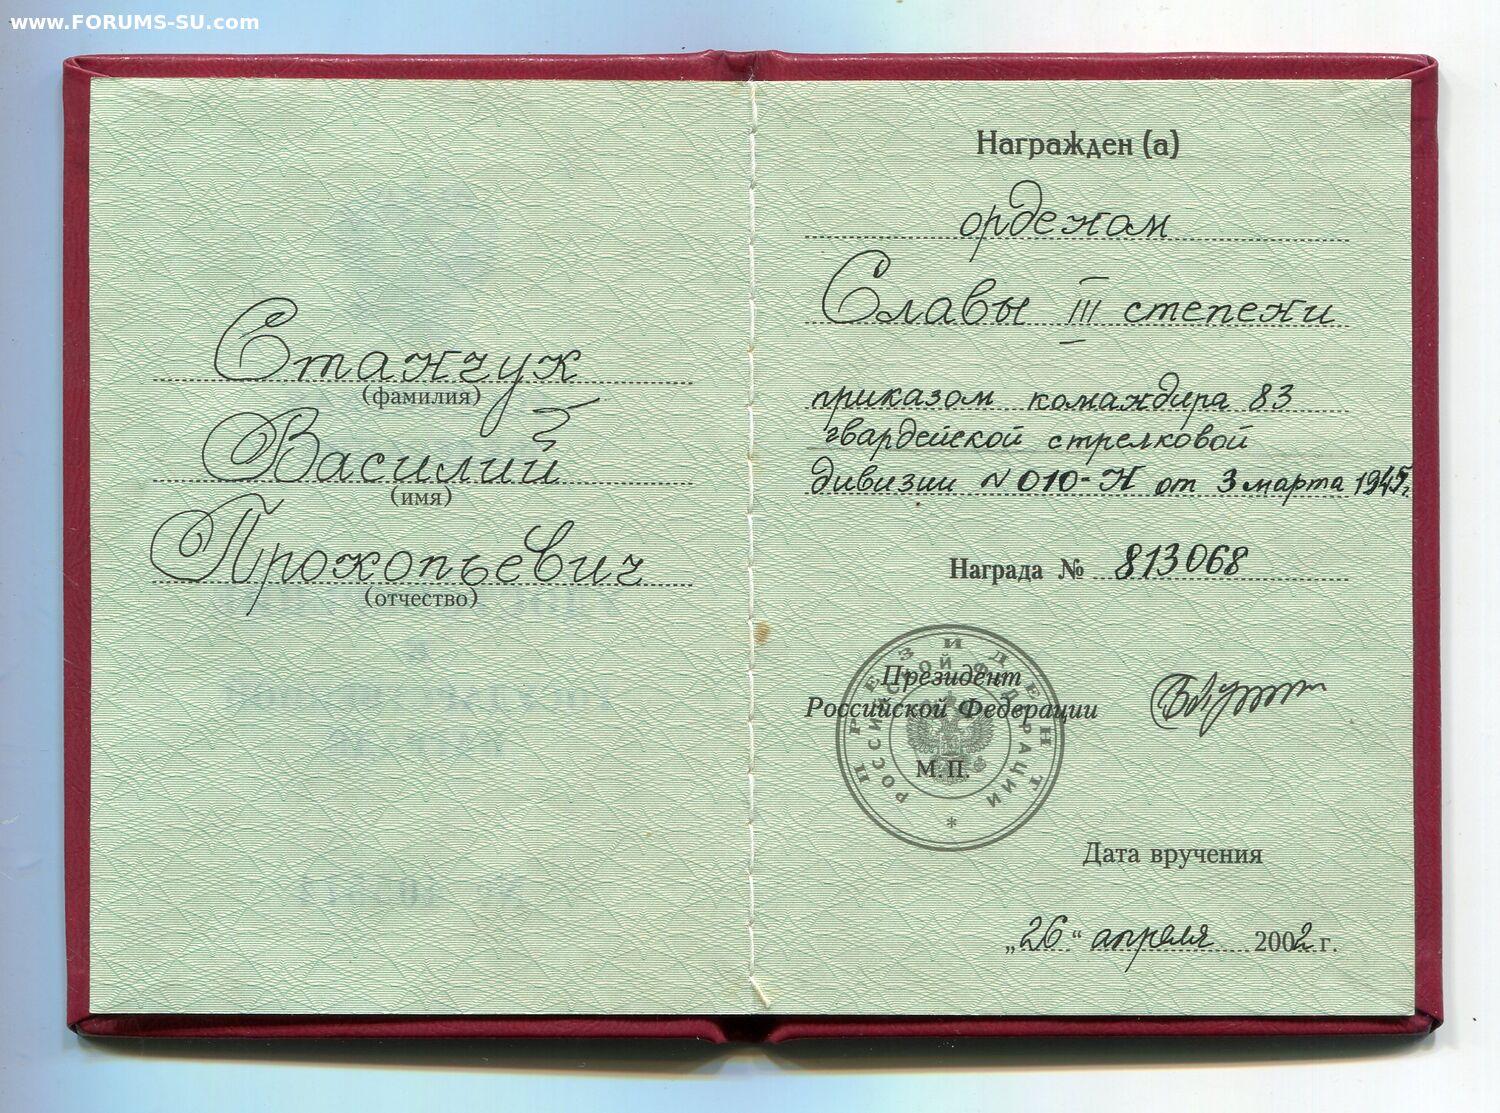 www.FORUMS-SU.com
Станчук
(фамилия)
Василий
(имя)
Прокопьевич
(отчество)
Награжден (а)
орденом
Славы III степени
приказом командира 83
гвардейской стрелковой
дивизии № 010-Н от 3 марта 1945г.
Награда № 813068
ПРЕЗИДЕНТ
РОССИЙСКОЙ ФЕДЕРАЦИИ
*
Президент
Российской Федерации
М.П.
Дата вручения
„26“ апреля 2002 г.